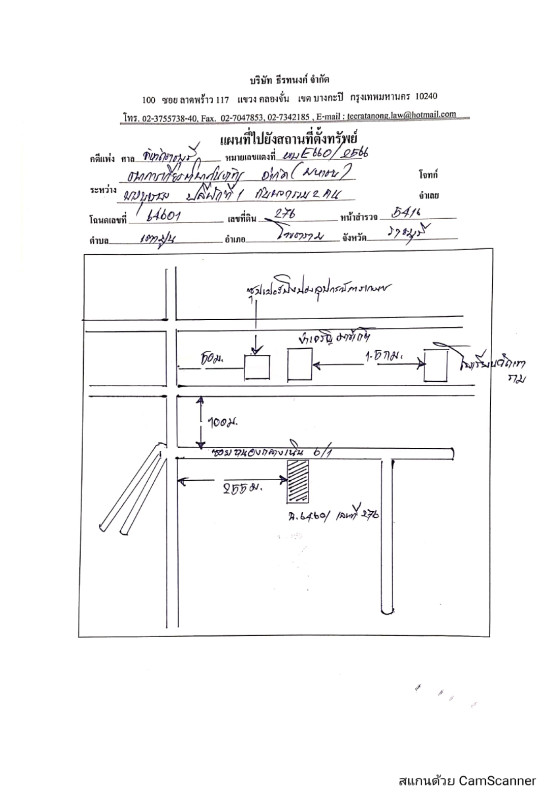 บริษัท ธีรทนงก์ จำกัด
100 ซอย ลาดพร้าว 117 แขวง คลองจั่น เขต บางกะปิ กรุงเทพมหานคร 10240
โทร. 02-3755738-40, Fax. 02-7047853, 02-7342185 , E-mail : teeratanong.law@hotmail.com
แผนที่ไปยังสถานที่ตั้งทรัพย์
คดีแพ่ง ศาล หมายเลขแดงที่ ผบE660/2566
จำกัด (มหาชน) โจทก์
ระหว่าง ที่ 1 กับพวกรวม 2 คน จำเลย
โฉนดเลขที่ 64601 เลขที่ดิน 276 หน้าสำรวจ 5416
ตำบล เตาปูน อำเภอ โพธาราม จังหวัด ราชบุรี
50ม.
1.5กม.
100ม.
ซอยหนองกลางเนิน 6/1
255ม.
ฉ.64601 เลขที่ 276
สแกนด้วย CamScanner